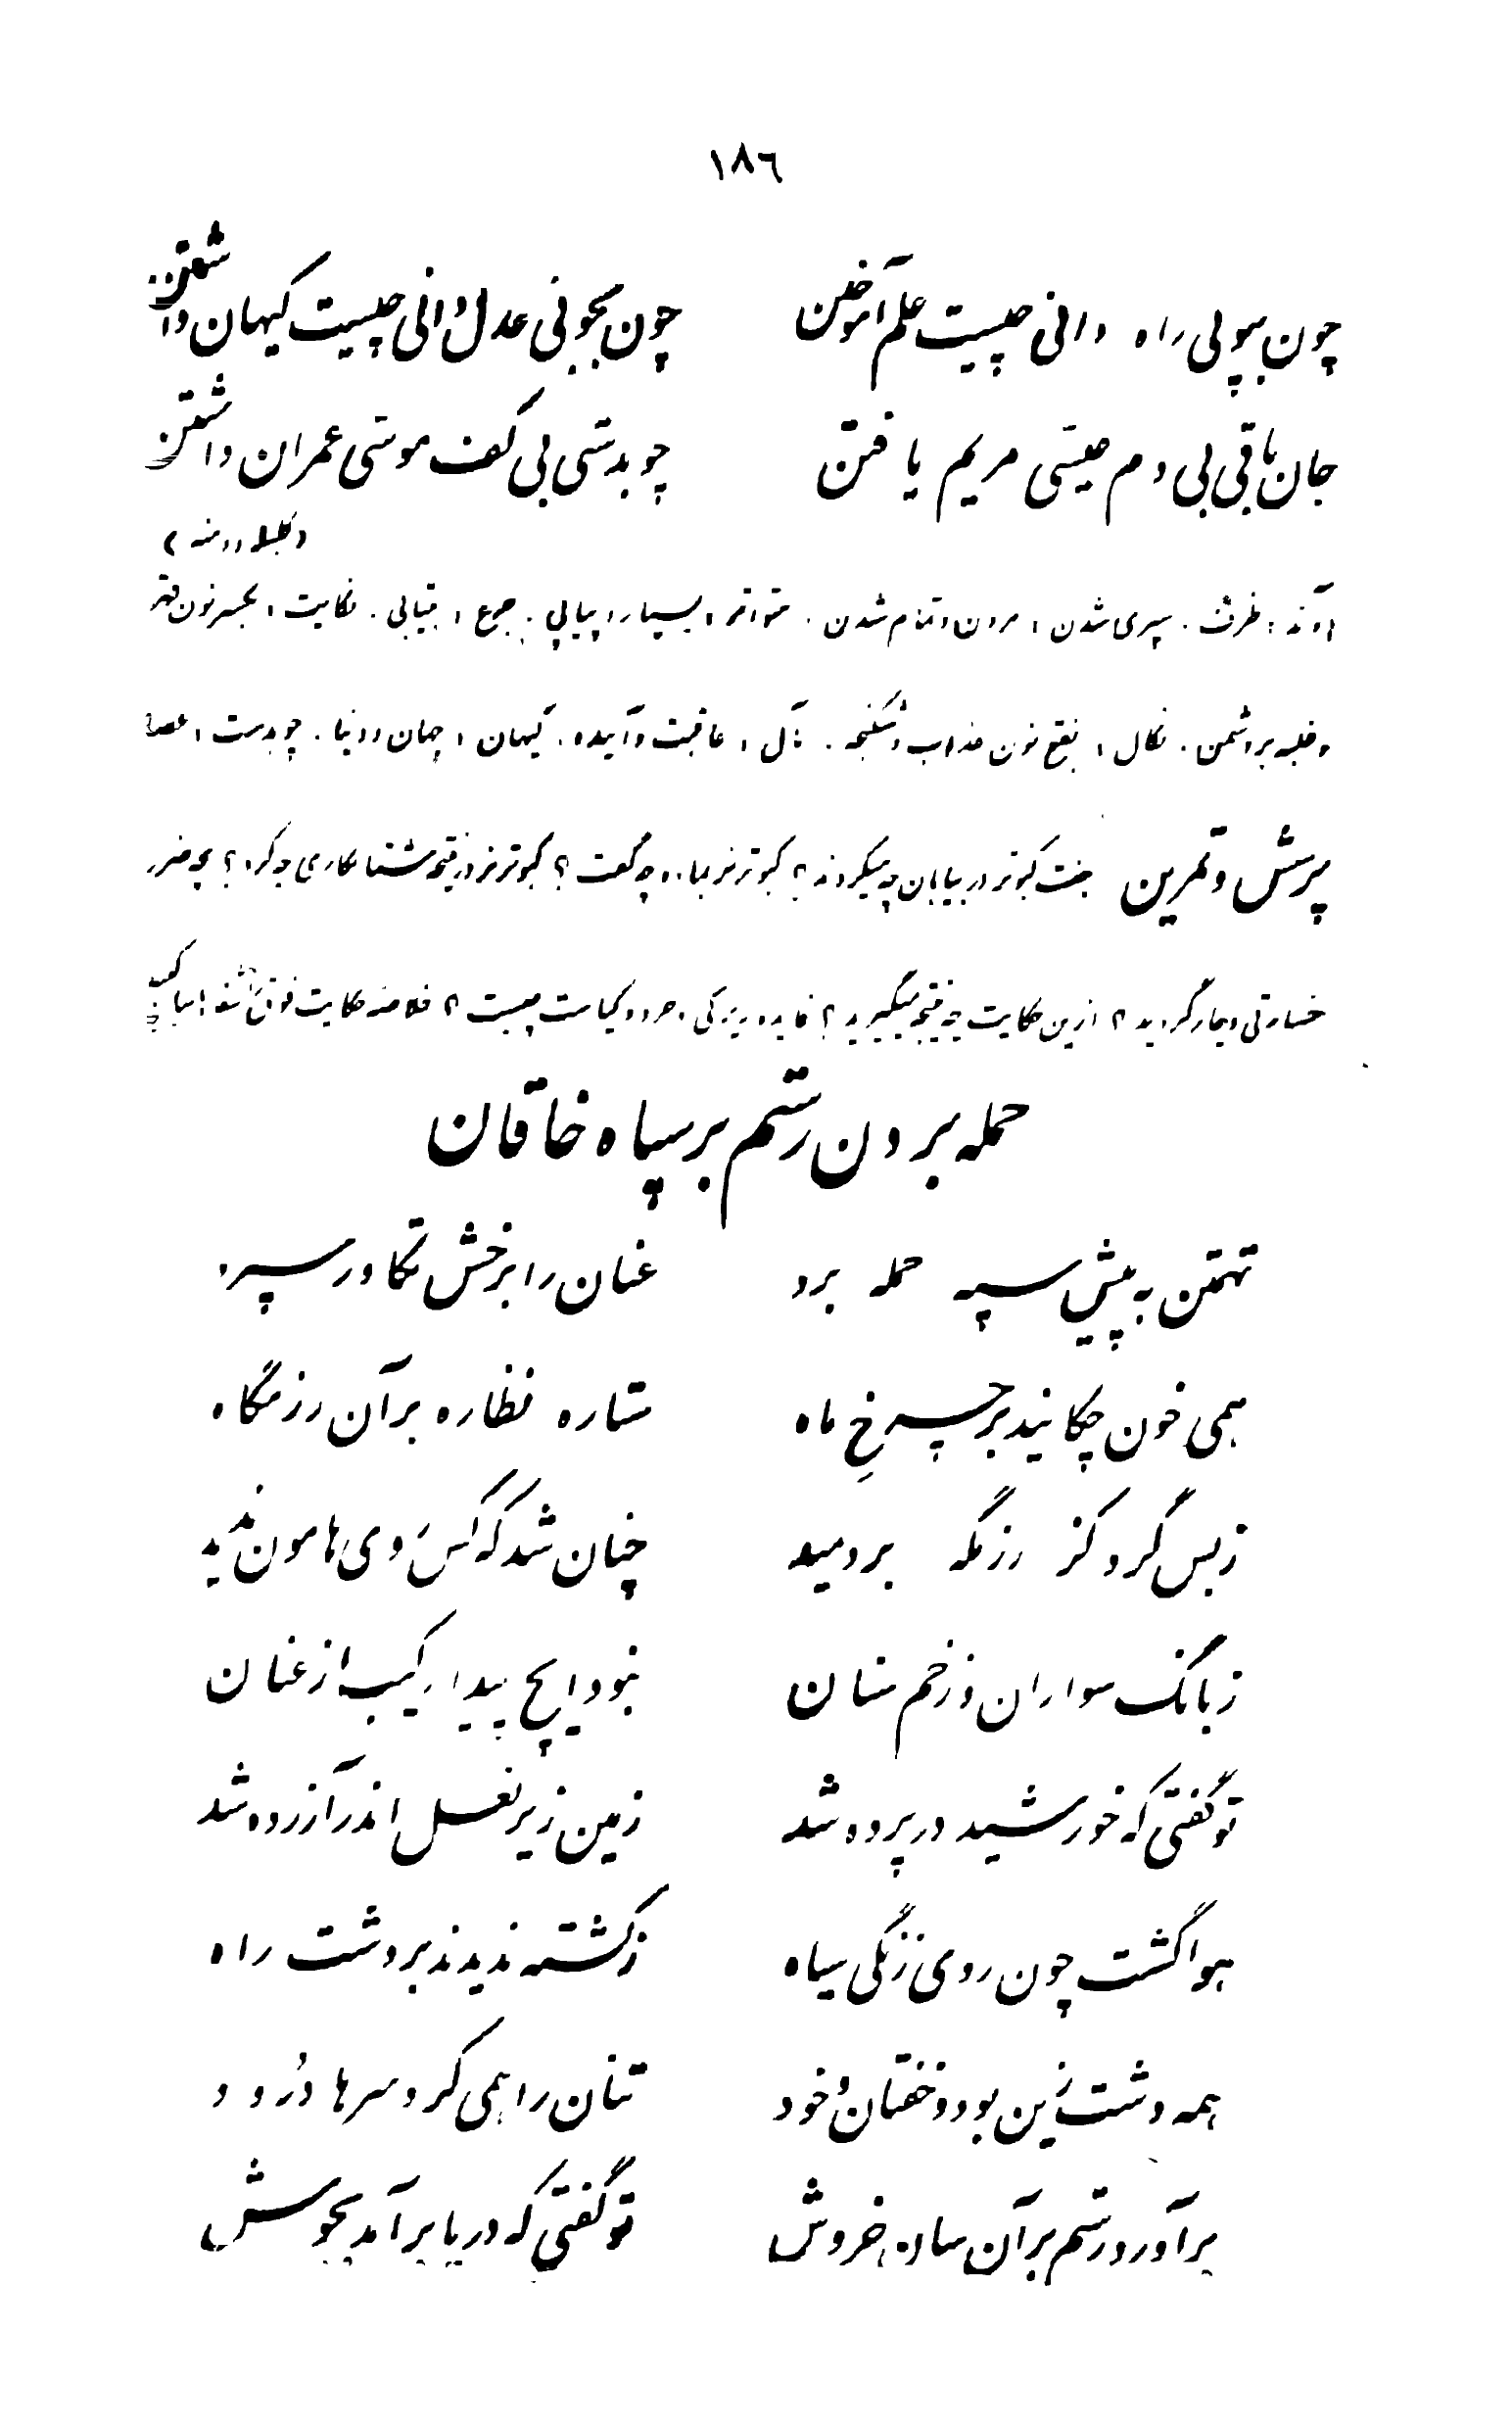 ١٨٦
چون بپوئی راه دانی چیست علم آموختن چون بجوئی عدل دانی چیست کیهان داشتن
جان باقی بی دم عیسی مریم یافتن چوبدستی بی کف موسی عمران داشتن
(کلیله و دمنه)
آوند: ظرف. سپری شدن: مردن و تمام شدن. متواتر: بسیار و پیاپی. جزع: بیتابی. نکایت: بکسر نون قهر
و غلبه بر دشمن. نکال: بفتح نون عذاب و شکنجه. مآل: عاقبت و آینده. کیهان: جهان و دنیا. چوبدست: عصا
پرسش و تمرین جفت کبوتر در بیابان چه میکردند؟ کبوتر نر بماده چه گفت؟ کبوتر نر در نتیجه شتابکاری چه کرد؟ بچه ضرر
خسارتی دچار گردید؟ ازین حکایت چه نتیجه میگیرید؟ فایده زیرکی و خرد و کیاست چیست؟ خلاصه حکایت فوق را شفاها بیان کنید
حمله بردن رستم بر سپاه خاقان
تهمتن به پیش سپه حمله برد عنان را برخش تکاور سپرد
همی خون چکانید بر چرخ ماه ستاره نظاره بر آن رزمگاه
ز بس گرد کز رزمگه بردمید چنان شد که کس روی هامون ندید
ز بانگ سواران و زخم سنان نبود ایچ پیدا رکیب از عنان
تو گفتی که خورشید در پرده شد زمین زیر نعل اندر آزرده شد
هوا گشت چون روی زنگی سیاه ز کشته ندیدند بر دشت راه
همه دشت زین بود و خفتان و خود تنان را همی کرد سرها درود
برآورد رستم بر آن سان خروش تو گفتی که دریا برآمد بجوش